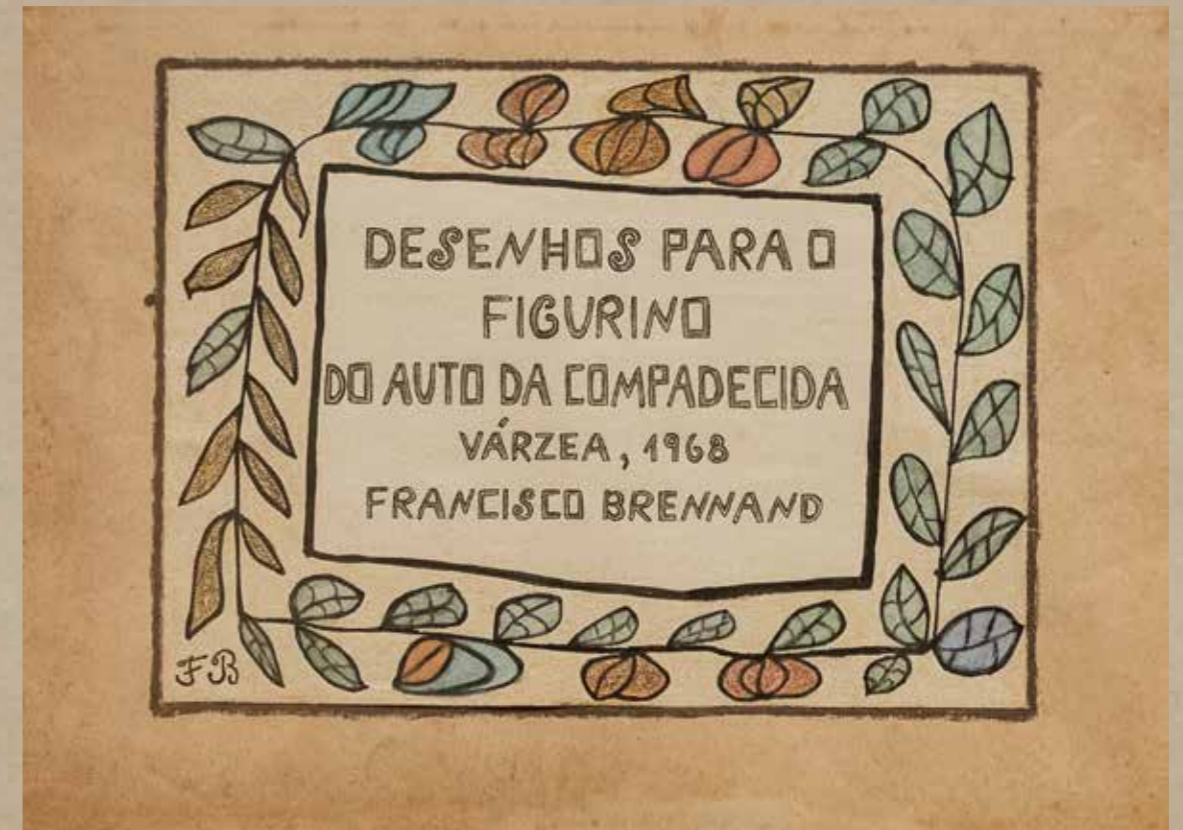 DESENHOS PARA O
FIGURINO
DO AUTO DA COMPADECIDA
VÁRZEA, 1968
FRANCISCO BRENNAND
FB